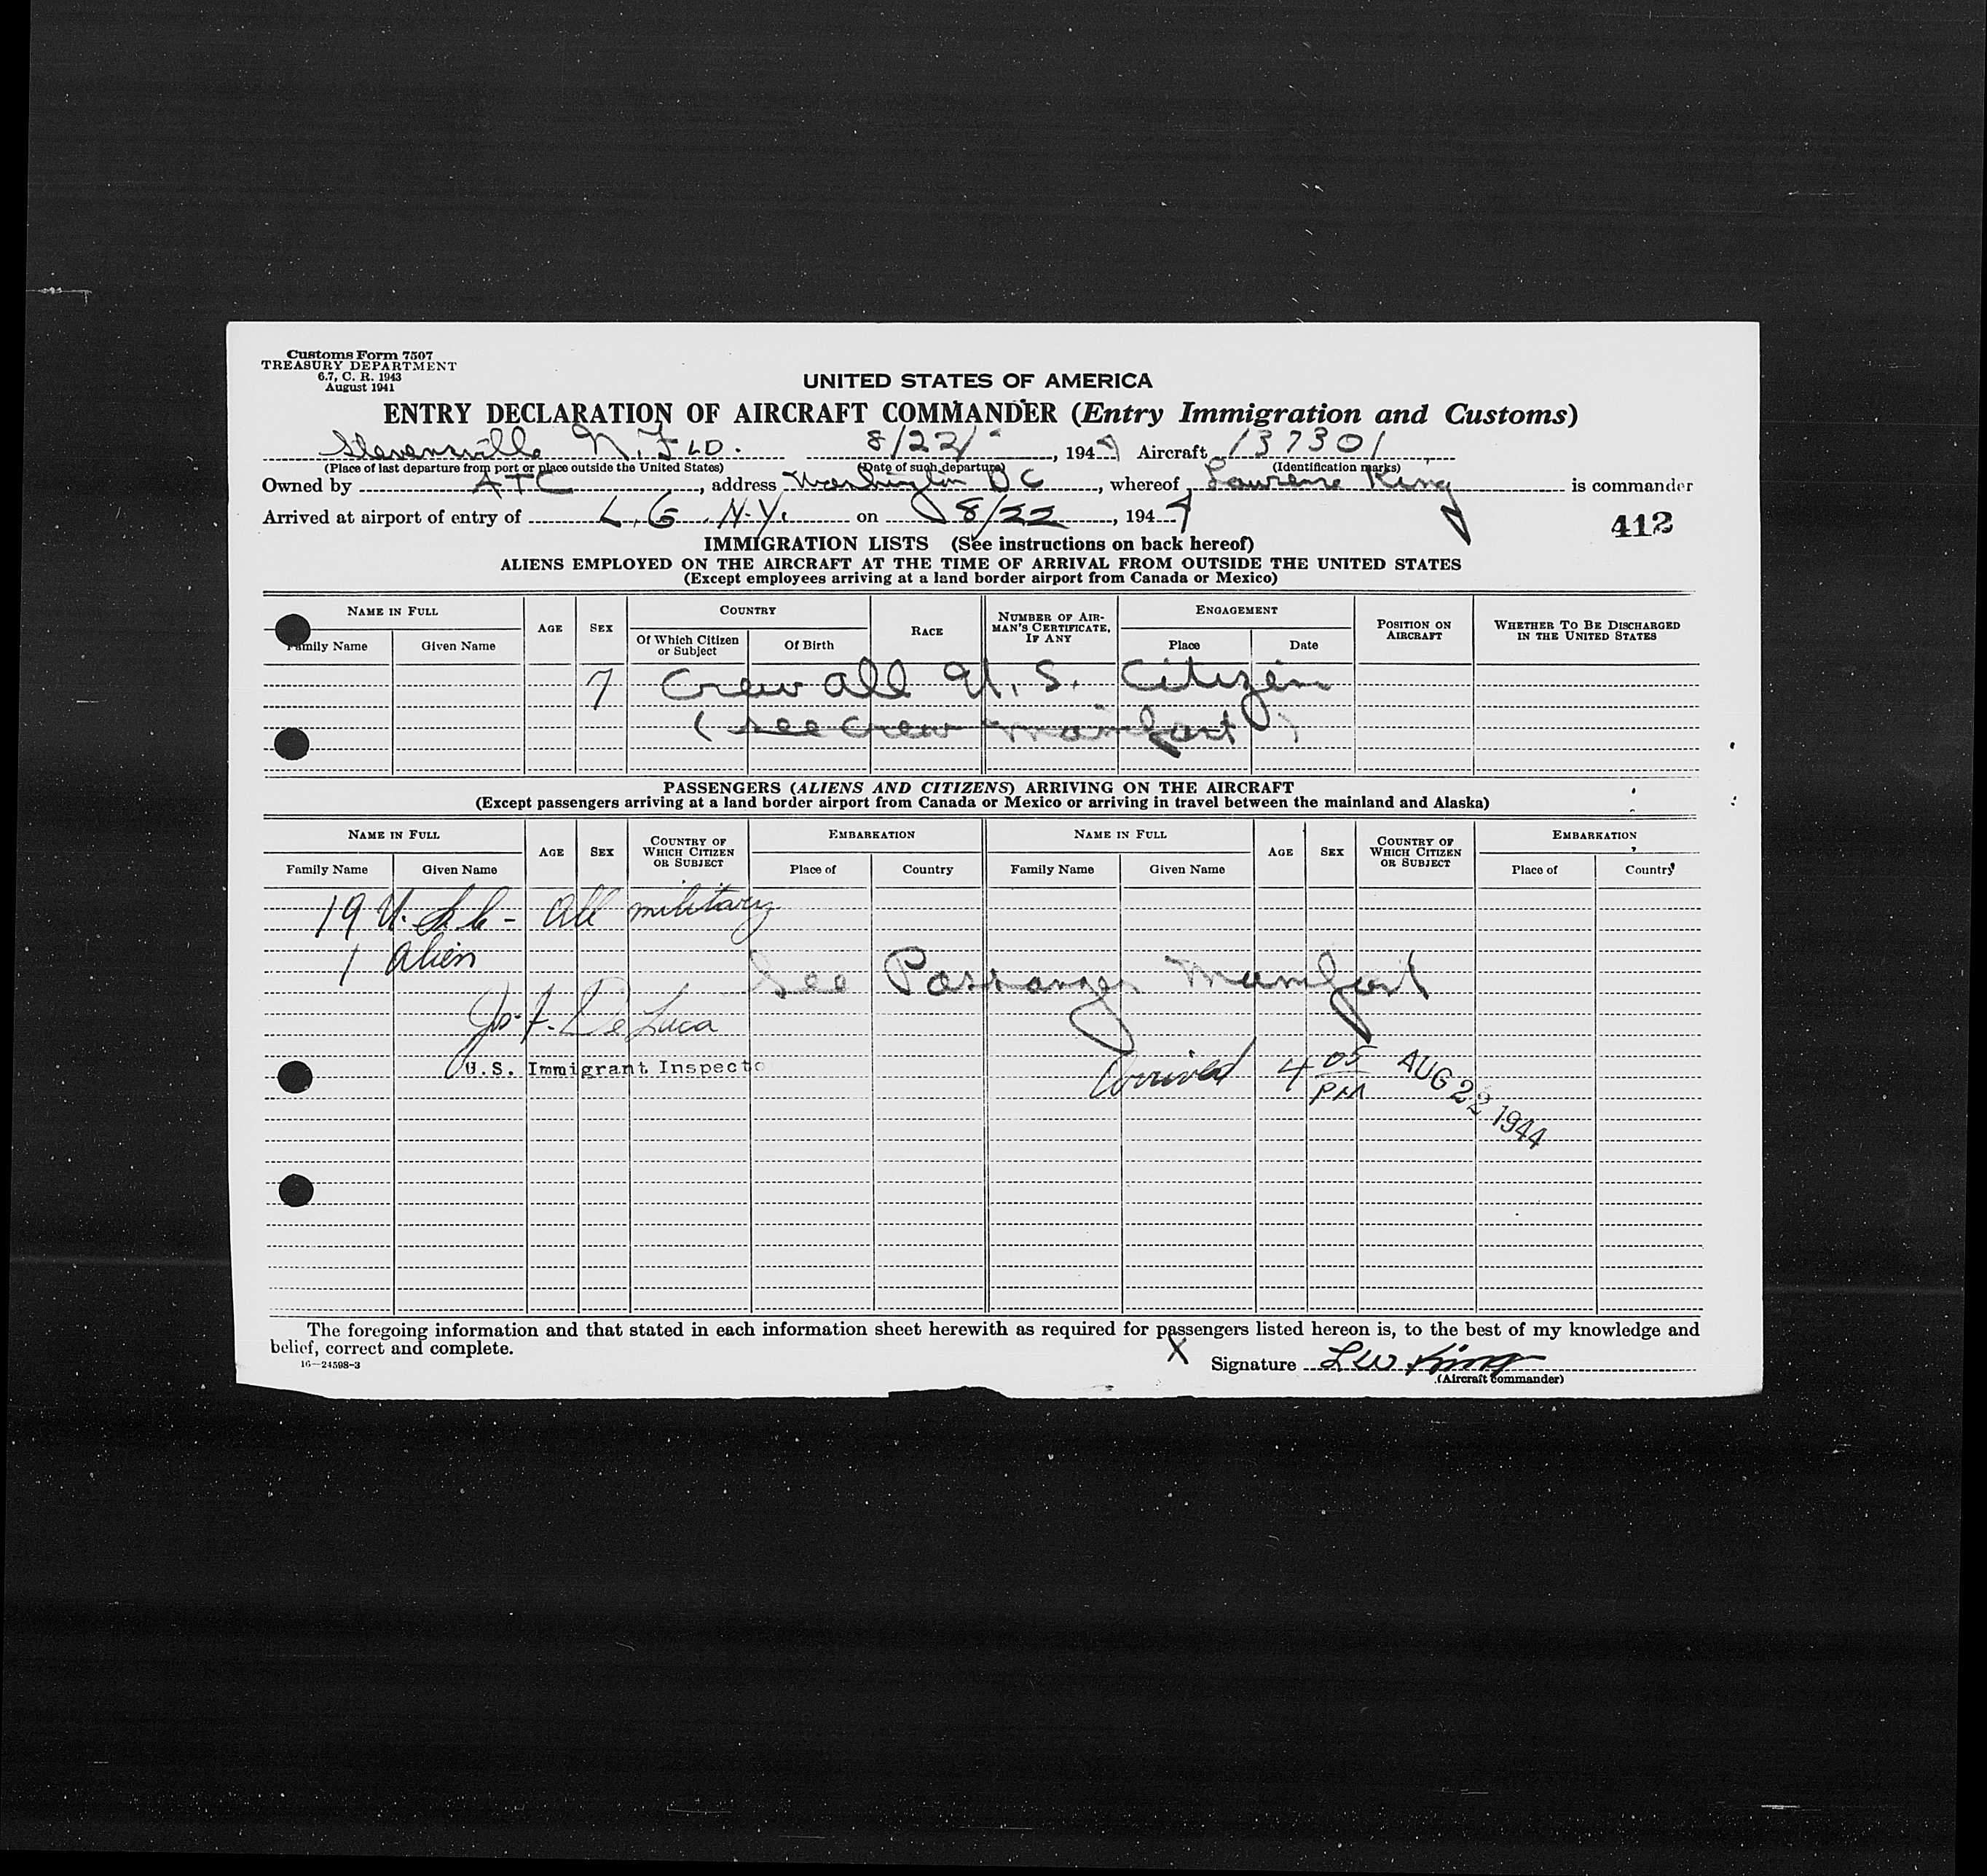 Customs Form 7507
TREASURY DEPARTMENT
6.7, C. R. 1943
August 1941
UNITED STATES OF AMERICA
ENTRY DECLARATION OF AIRCRAFT COMMANDER (Entry Immigration and Customs)
Stevensville N. FLD. 8/22/ , 194 Aircraft 137301
(Place of last departure from port or place outside the United States) (Date of such departure) (Identification marks)
Owned by ATC , address Washington DC , whereof Lawrence King is commander
Arrived at airport of entry of L. G. N.Y. on 8/22 , 1944
412
IMMIGRATION LISTS (See instructions on back hereof)
ALIENS EMPLOYED ON THE AIRCRAFT AT THE TIME OF ARRIVAL FROM OUTSIDE THE UNITED STATES
(Except employees arriving at a land border airport from Canada or Mexico)
NAME IN FULL AGE SEX COUNTRY RACE NUMBER OF AIR-MAN'S CERTIFICATE, IF ANY ENGAGEMENT POSITION ON AIRCRAFT WHETHER TO BE DISCHARGED IN THE UNITED STATES
Family Name Given Name Of Which Citizen or Subject Of Birth Place Date
7 Crew all U. S. Citizen
( see crew manifast )
PASSENGERS (ALIENS AND CITIZENS) ARRIVING ON THE AIRCRAFT
(Except passengers arriving at a land border airport from Canada or Mexico or arriving in travel between the mainland and Alaska)
NAME IN FULL AGE SEX COUNTRY OF WHICH CITIZEN OR SUBJECT EMBARKATION NAME IN FULL AGE SEX COUNTRY OF WHICH CITIZEN OR SUBJECT EMBARKATION
Family Name Given Name Place of Country Family Name Given Name Place of Country
19 U.S.C - all military
1 alien
See Passanger Manifast
Jos. F. De Luca
U.S. Immigrant Inspecto
Arrived 4 05 PM AUG 22 1944
The foregoing information and that stated in each information sheet herewith as required for passengers listed hereon is, to the best of my knowledge and
belief, correct and complete.
16—24598-3
X Signature L W King
(Aircraft commander)